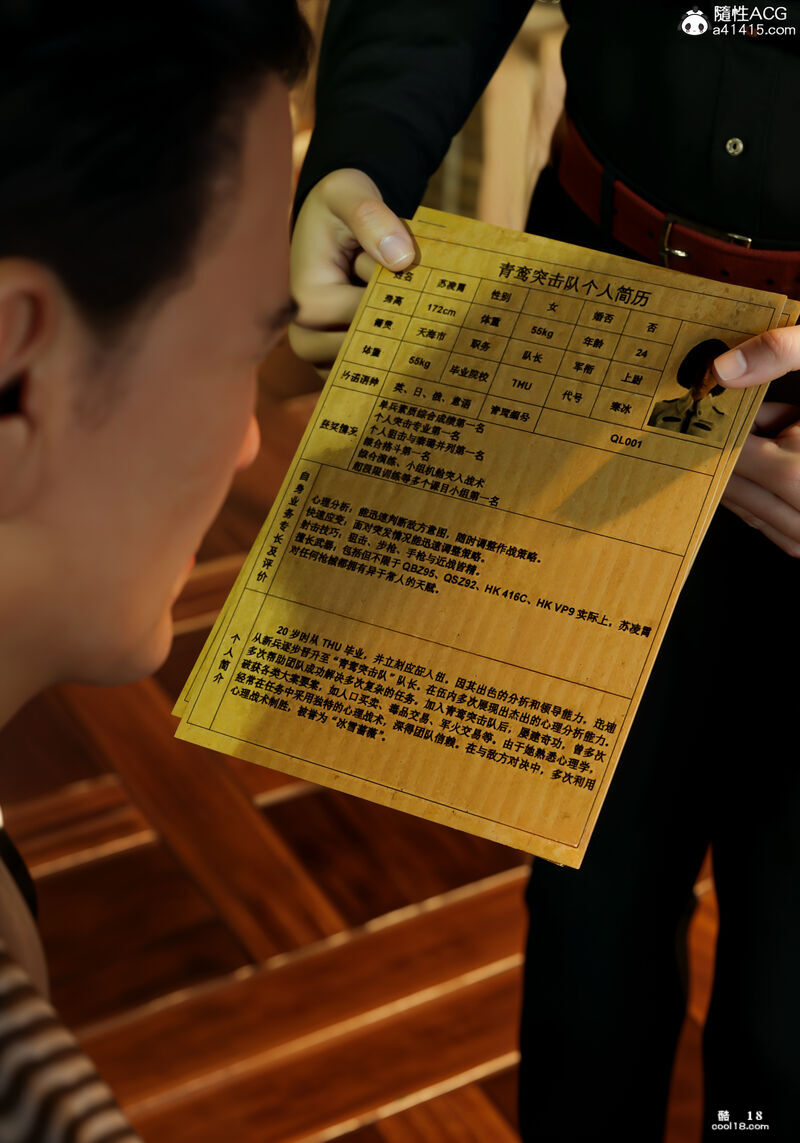 隨性ACG
a41415.com
青鸾突击队个人简历
姓名 苏凌霄 性别 女 婚否 否
身高 172cm 体重 55kg 年龄 24
籍贯 天海市 职务 队长 军衔 上尉
体重 55kg 毕业院校 THU 代号 寒冰
外语语种 英、日、俄、意语 青鸾编号 QL001
获奖情况
单兵素质综合成绩第一名
个人突击专业第一名
个人狙击与索瑞并列第一名
综合格斗第一名
综合演练、小组机舱突入战术
和极限训练等多个课目小组第一名
自身业务专长及评价
心理分析，能迅速判断敌方意图，随时调整作战策略。
快速应变，面对突发情况能迅速调整策略。
射击技巧，狙击、步枪、手枪与近战皆精。
擅长武器，包括但不限于 QBZ95、QSZ92、HK 416C、HK VP9 实际上，苏凌霄
对任何枪械都拥有异于常人的天赋。
个人简介
20 岁时从 THU 毕业，并立刻应征入伍，因其出色的分析和领导能力，迅速
从新兵逐步晋升至“青鸾突击队”队长。在伍内多次展现出杰出的心理分析能力。
多次帮助团队成功解决多次复杂的任务。加入青鸾突击队后，屡建奇功，曾多次
破获各类大案要案，如人口买卖、毒品交易、军火交易等。由于她熟悉心理学，
经常在任务中采用独特的心理战术，深得团队信赖。在与敌方对决中，多次利用
心理战术制胜，被誉为“冰雪蔷薇”。
酷 18
cool18.com